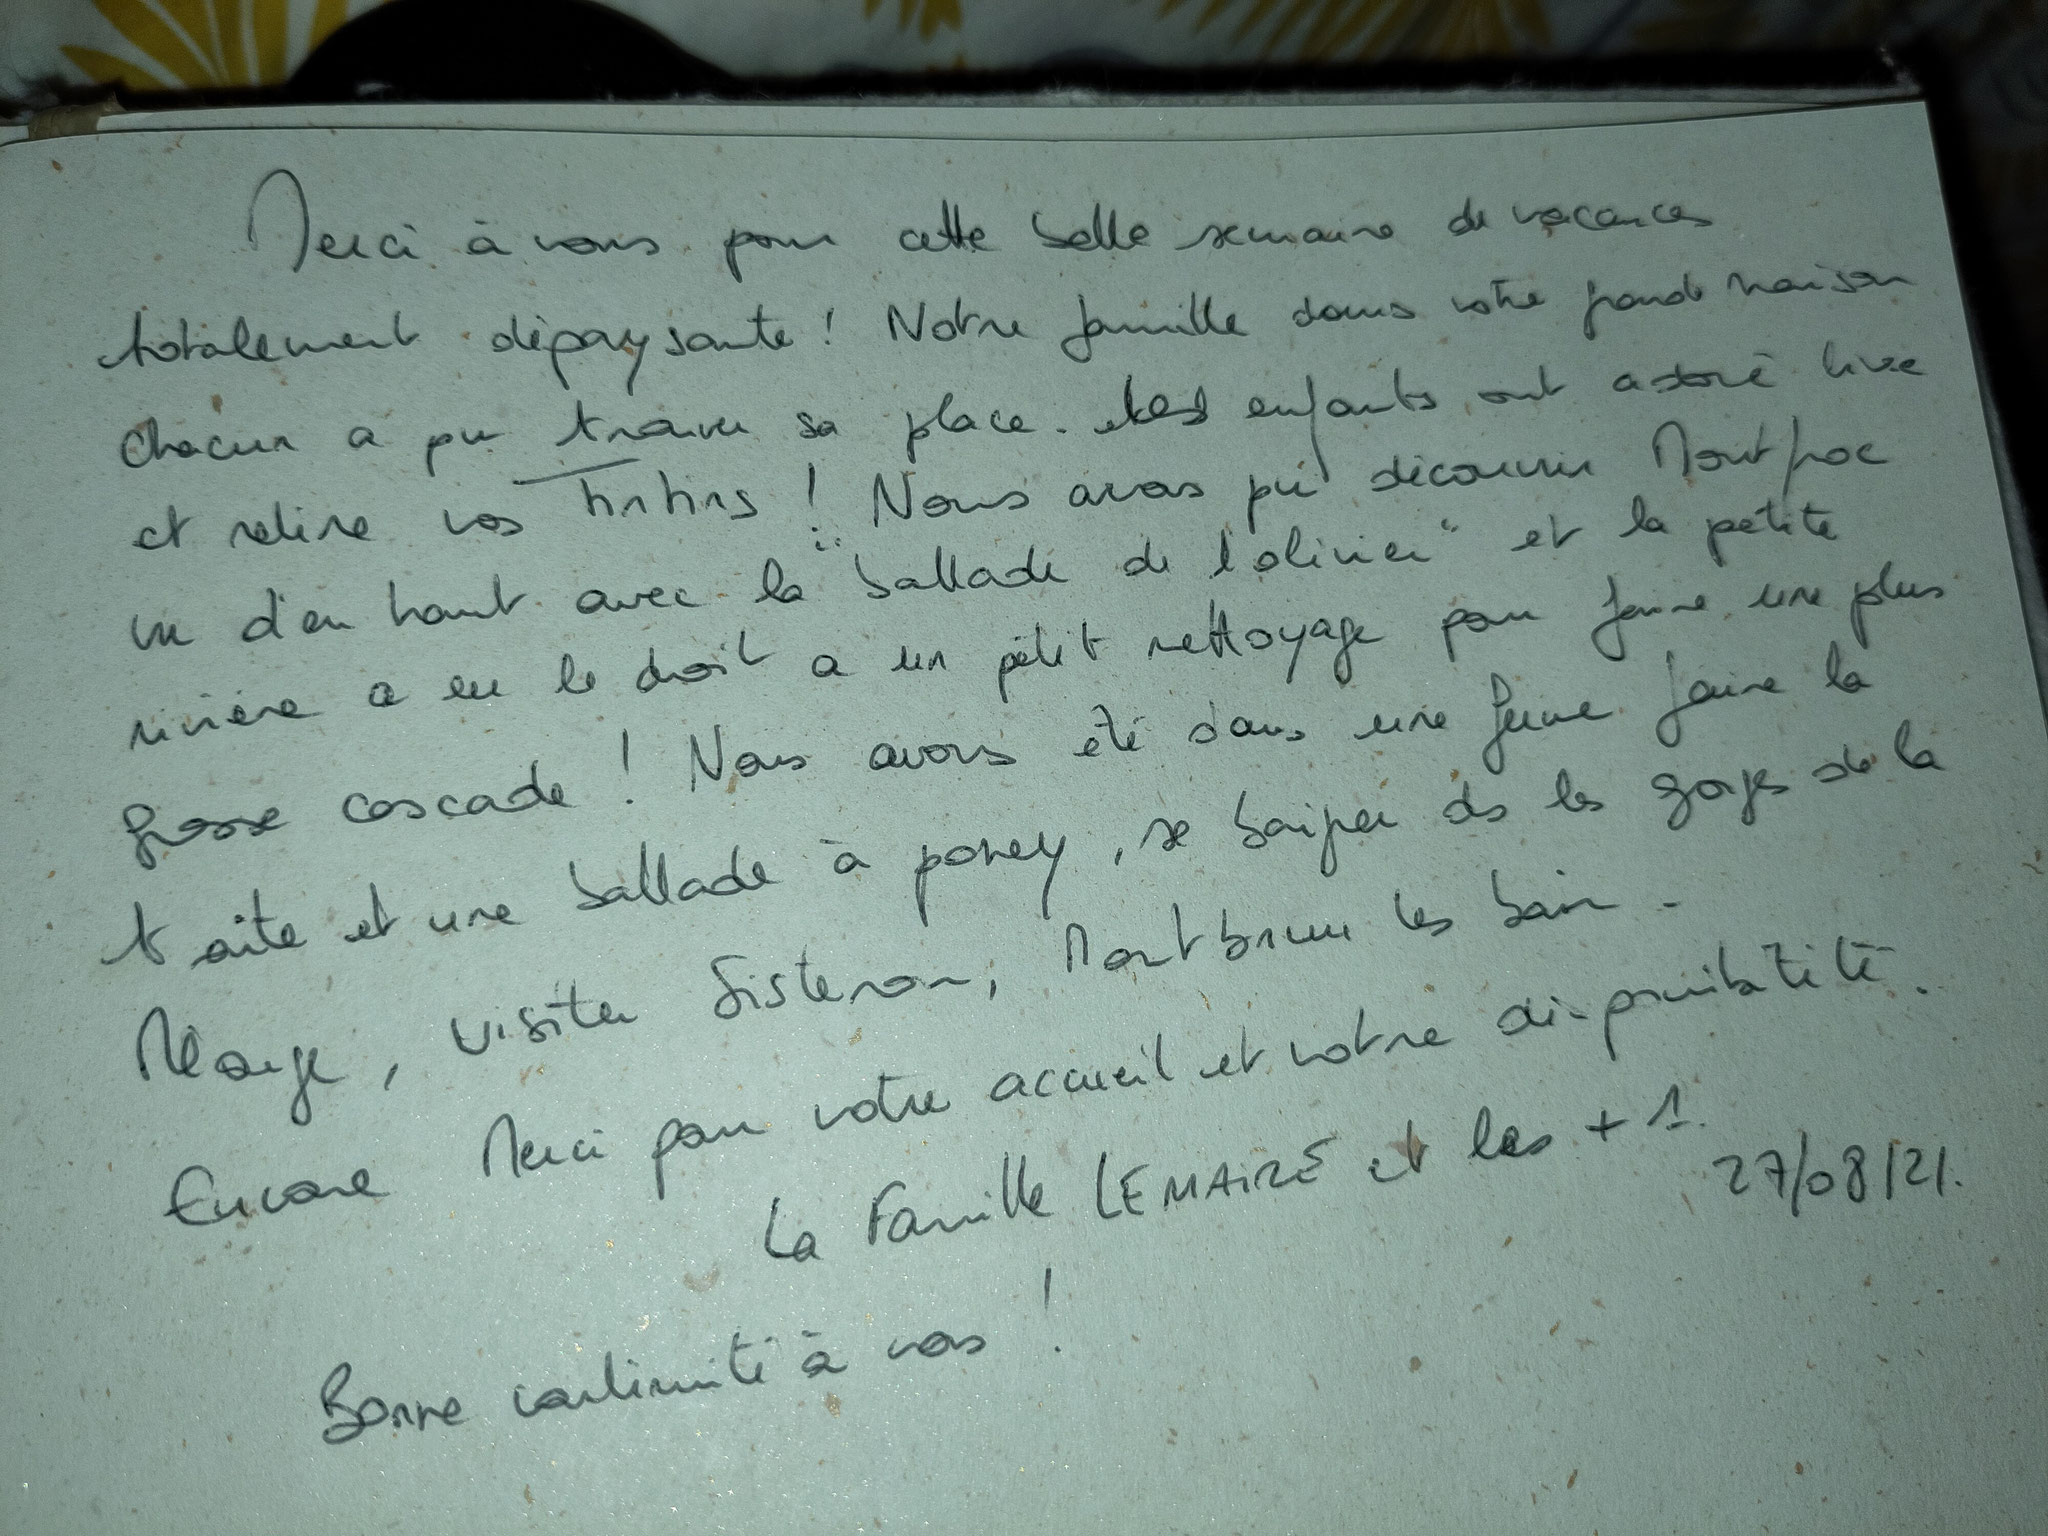 Merci à vous pour cette belle semaine de vacances
totalement dépaysante ! Notre famille dans votre grande maison
chacun a pu trouver sa place. Les enfants ont adoré lire
et relire vos Tintins ! Nous avons pu découvrir Montfroc
vu d'en haut avec la "ballade de l'olivier" et la petite
rivière a eu le droit a un petit nettoyage pour faire une plus
grosse cascade ! Nous avons été dans une ferme faire la
traite et une ballade à poney, se baigner ds les gorges de la
Méouge, visiter Sisteron, Montbrun les bain.
Encore Merci pour votre accueil et votre disponibilité.
La Famille LEMAIRE et les + 1.
27/08/21.
Bonne continuité à vous !